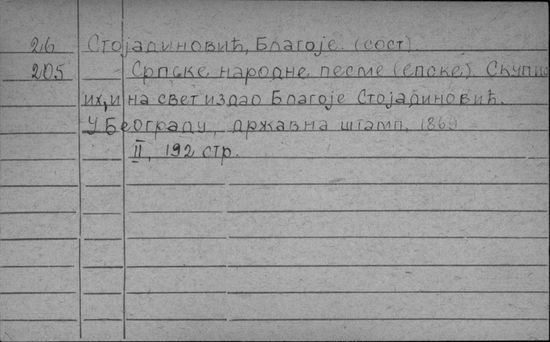 26 Стојадиновић, Благоје. (сост).
205 Српске народне песме (епске). Скупио
их, и на свет издао Благоје Стојадиновић.
У Београду, државна штамп, 1869
II, 192 стр.